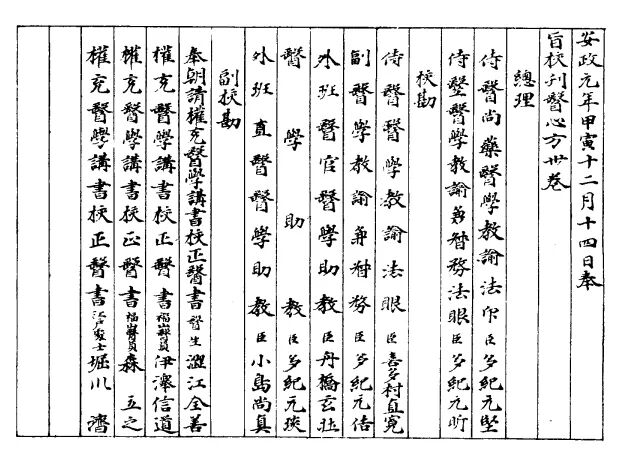 安政元年甲寅十二月十四日奉
旨校刊醫心方卅卷
總理
侍醫尚藥醫學教諭法印臣多紀元堅
侍醫醫學教諭兼督務法眼臣多紀元昕
校勘
侍醫醫學教諭法眼臣喜多村直寬
副醫學教諭兼督務臣多紀元佶
外班醫官醫學助教臣丹橋玄壯
醫學助教臣多紀元琰
外班直醫醫學助教臣小島尚真
副校勘
奉朝請權充醫學講書校正醫書醫生澀江全善
權充醫學講書校正醫書福山醫員伊澤信道
權充醫學講書校正醫書福山醫員森立之
權充醫學講書校正醫書江戶處士堀川濟